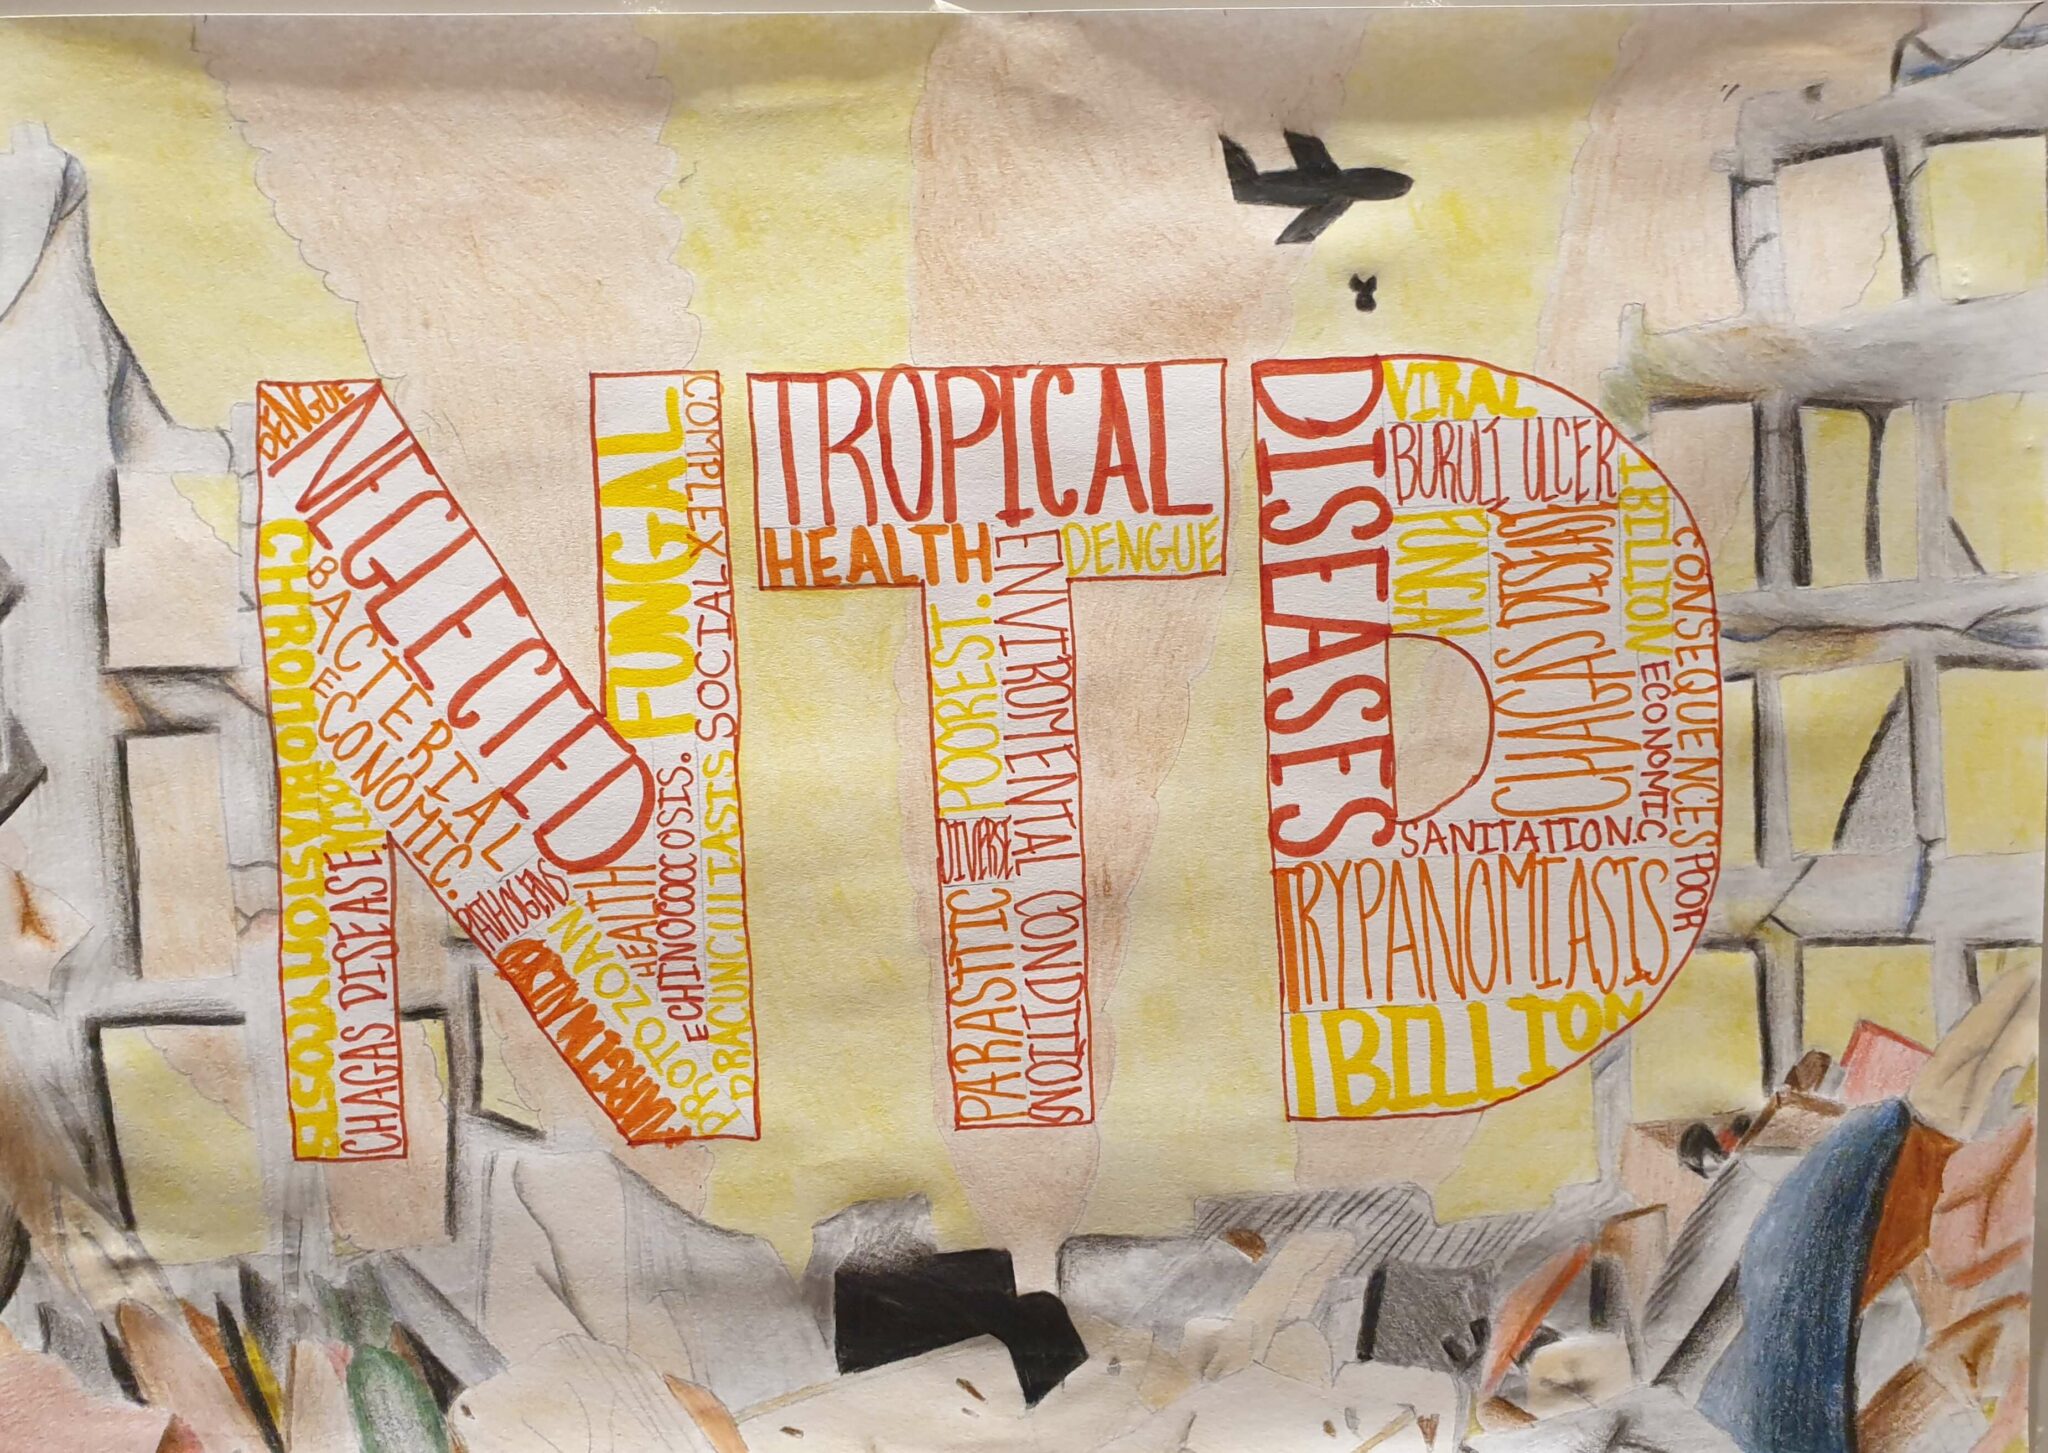 DENGUE
NEGLECTED
BACTERIAL
ECONOMIC.
CHAGAS DISEASE
PATHOGENS
HEALTH
PROTOZOAN
DRACUNCULIASIS
FUNGAL
COMPLEX
SOCIAL
TROPICAL
HEALTH
DENGUE
POOREST.
ENVIROMENTAL CONDITIONS
DIVERSE
PARASITIC
DISEASES
VIRAL
BURULI ULCER
CHAGAS DISEASE
1 BILLION
CONSEQUENCES POOR
ECONOMIC
SANITATION.
TRYPANOMIASIS
1 BILLION